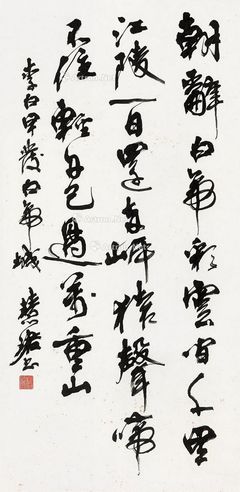 朝辭白帝彩雲間千里
江陵一日還兩岸猿聲啼
不住輕舟已過萬重山
李白早發白帝城 慧珺書